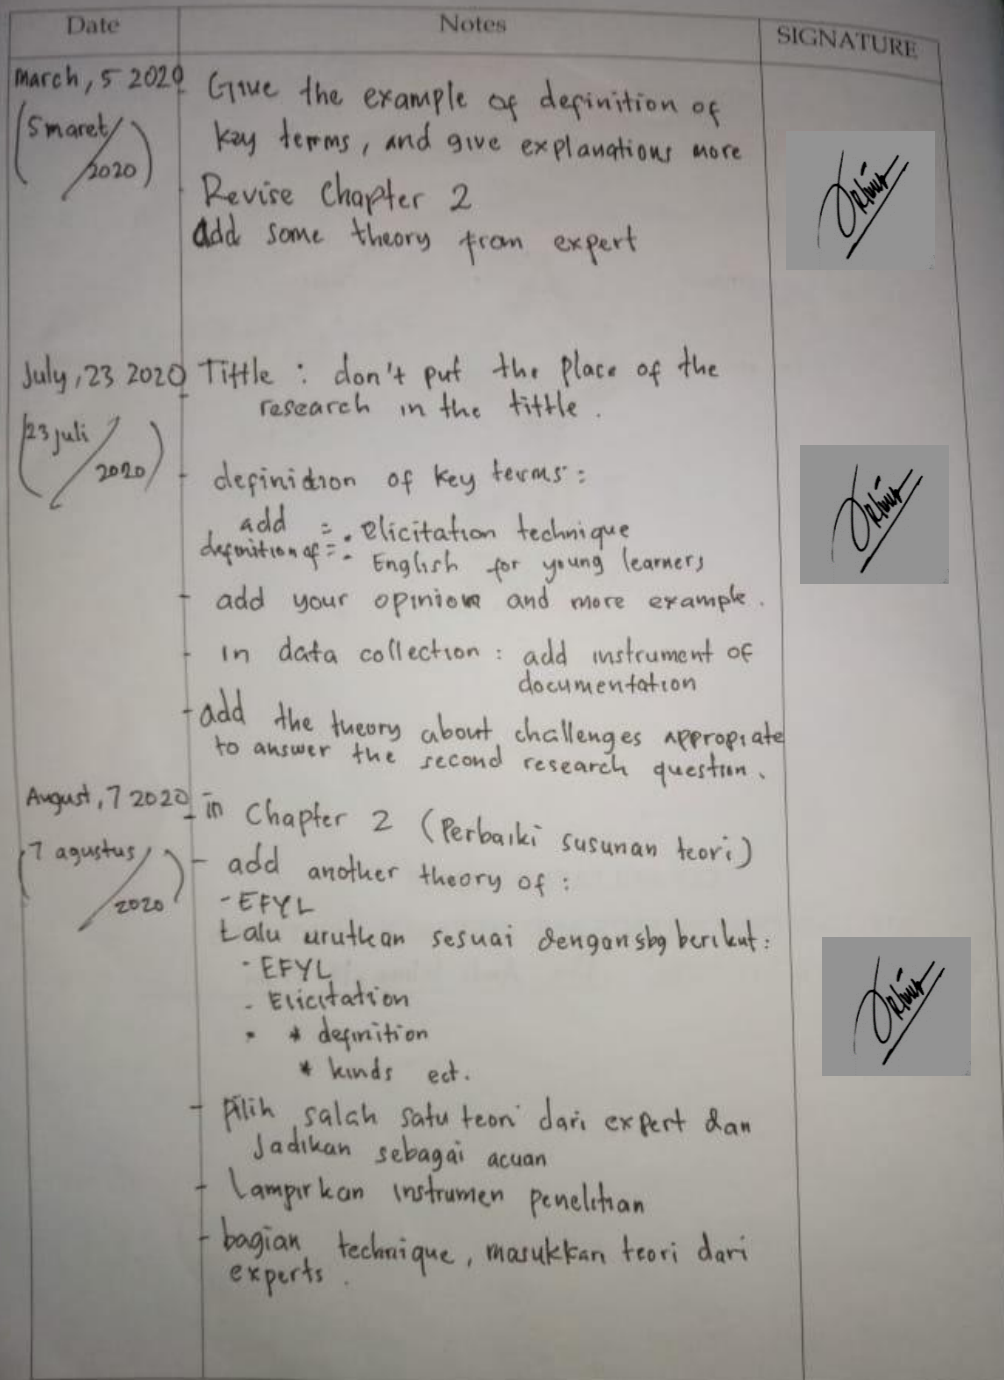 Date Notes SIGNATURE
March, 5 2020
(5 maret/2020)
Give the example of definition of
key terms, and give explanations more
- Revise Chapter 2
add some theory from expert
July, 23 2020
(23 juli/2020)
- Tittle : don't put the place of the
research in the tittle.
- definition of key terms :
add definition of = : elicitation technique
English for young learners
- add your opinion and more example.
- in data collection : add instrument of
documentation
- add the theory about challenges appropiate
to answer the second research question.
August, 7 2020
(7 agustus/2020)
- in Chapter 2 (Perbaiki susunan teori)
- add another theory of :
- EFYL
Lalu urutkan sesuai dengan sbg berikut :
- EFYL
- Elicitation
- * definition
* kinds ect.
- pilih salah satu teori dari expert dan
Jadikan sebagai acuan
- Lampirkan instrumen penelitian
- bagian technique, masukkan teori dari
experts.